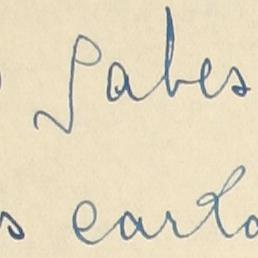 Sabes
s carta